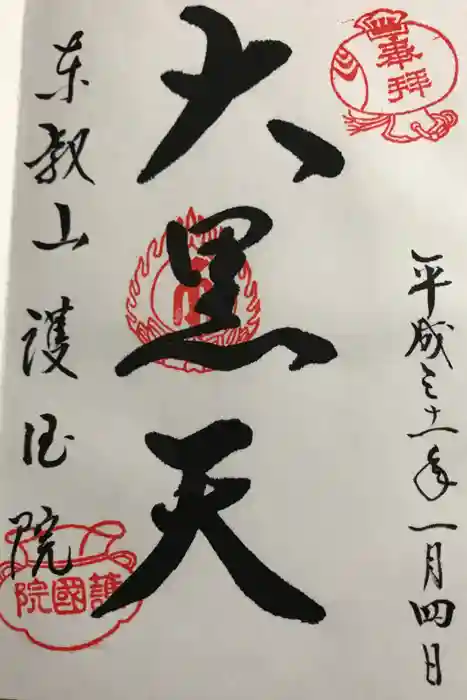 奉拝
平成三十一年一月四日
大黒天
東叡山護国院
護國院